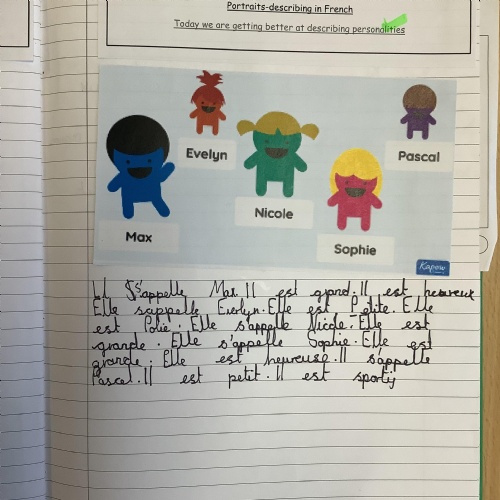 Portraits-describing in French
Today we are getting better at describing personalities
Evelyn
Pascal
Nicole
Max
Sophie
Kapow
Il s'appelle Max. Il est grand. Il est heureux
Elle s'appelle Evelyn. Elle est Petite. Elle
est Polie. Elle s'appelle Nicole. Elle est
grande. Elle s'appelle Sophie. Elle est
grande. Elle est heureuse. Il s'appelle
Pascal. Il est petit. Il est sportif